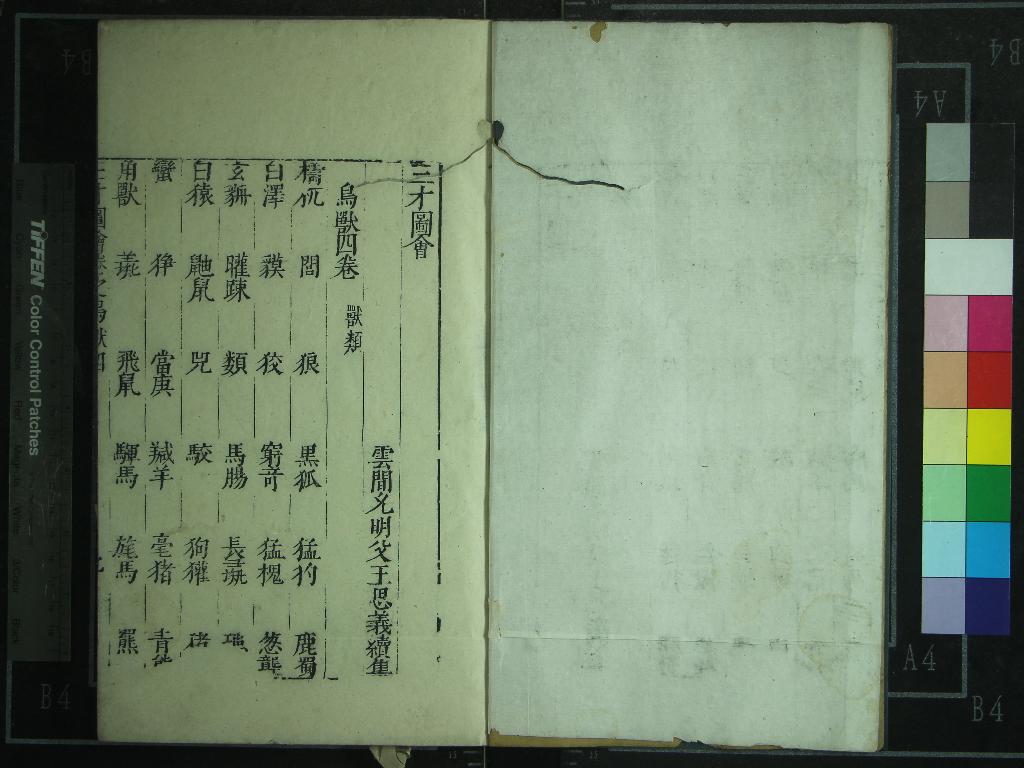 三才圖會
雲間允明父王思義續集
鳥獸四卷 獸類
橋㐌 閭 狼 黑狐 猛豹 鹿蜀
白澤 獏 狡 窮奇 猛槐 葱聾
玄貅 䑏疎 類 馬腸 長彘
白猿 鼬鼠 兕 駮 狗獾
蠻 猙 當庚 羬羊 毫猪 青
角獸 飛鼠 驒馬 旄馬 羆
TIFFEN Color Control Patches
A4
B4
A4
B4
B4
B4